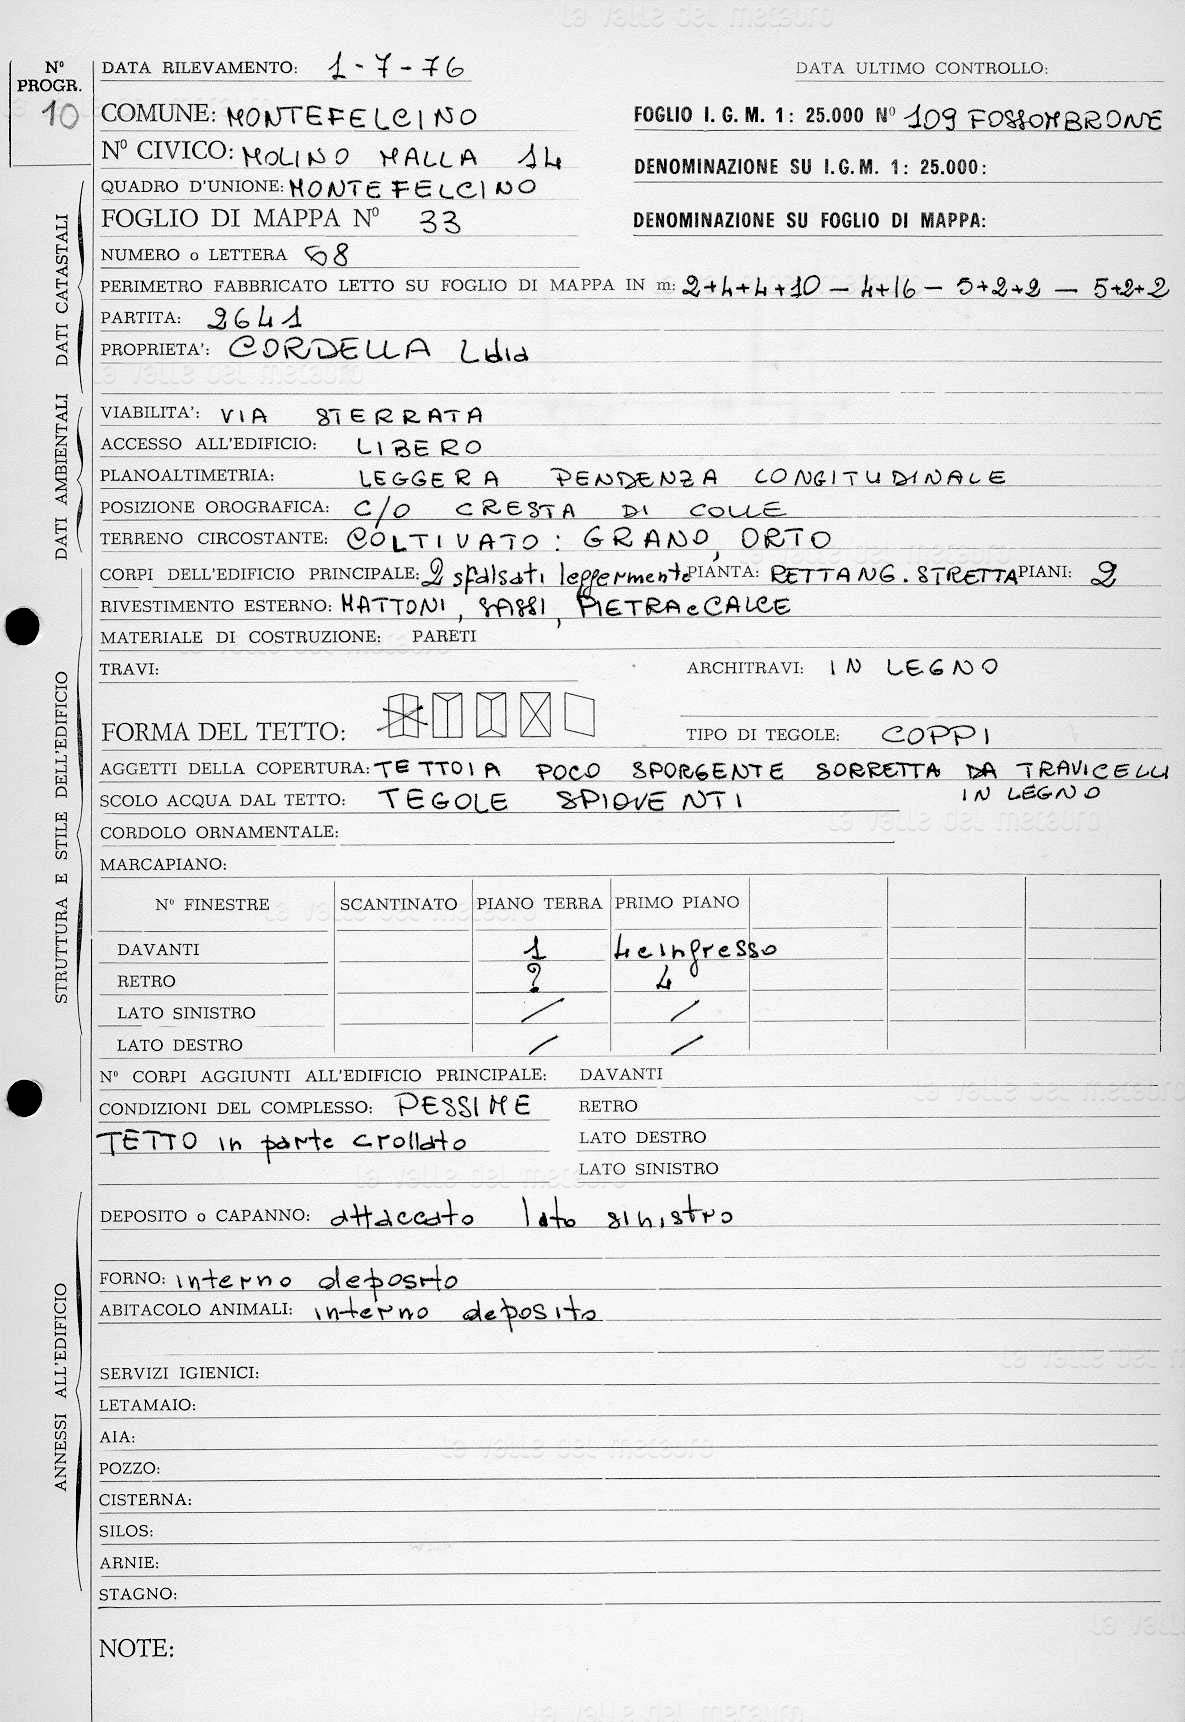 la valle del metauro
Nº PROGR. 10
DATA RILEVAMENTO: 1-7-76
DATA ULTIMO CONTROLLO:
COMUNE: MONTEFELCINO
FOGLIO I.G.M. 1: 25.000 Nº 109 FOSSOMBRONE
Nº CIVICO: MOLINO MALLA 14
DENOMINAZIONE SU I.G.M. 1: 25.000:
QUADRO D'UNIONE: MONTEFELCINO
FOGLIO DI MAPPA Nº 33
DENOMINAZIONE SU FOGLIO DI MAPPA:
NUMERO o LETTERA 68
PERIMETRO FABBRICATO LETTO SU FOGLIO DI MAPPA IN m: 2+4+4+10 - 4+16 - 5+2+2 - 5+2+2
PARTITA: 2641
PROPRIETA': CORDELLA Lidia
DATI CATASTALI
VIABILITA': VIA STERRATA
ACCESSO ALL'EDIFICIO: LIBERO
PLANOALTIMETRIA: LEGGERA PENDENZA LONGITUDINALE
POSIZIONE OROGRAFICA: C/O CRESTA DI COLLE
TERRENO CIRCOSTANTE: COLTIVATO: GRANO, ORTO
DATI AMBIENTALI
CORPI DELL'EDIFICIO PRINCIPALE: 2 sfalsati leggermente PIANTA: RETTANG. STRETTA PIANI: 2
RIVESTIMENTO ESTERNO: MATTONI, SASSI, PIETRA e CALCE
MATERIALE DI COSTRUZIONE: PARETI
TRAVI:
ARCHITRAVI: IN LEGNO
FORMA DEL TETTO:
TIPO DI TEGOLE: COPPI
AGGETTI DELLA COPERTURA: TETTOIA POCO SPORGENTE SORRETTA DA TRAVICELLI
IN LEGNO
SCOLO ACQUA DAL TETTO: TEGOLE SPIOVENTI
CORDOLO ORNAMENTALE:
MARCAPIANO:
Nº FINESTRE SCANTINATO PIANO TERRA PRIMO PIANO
DAVANTI 1 4 e ingresso
RETRO ? 4
LATO SINISTRO / /
LATO DESTRO / /
STRUTTURA E STILE DELL'EDIFICIO
Nº CORPI AGGIUNTI ALL'EDIFICIO PRINCIPALE: DAVANTI
CONDIZIONI DEL COMPLESSO: PESSIME
RETRO
TETTO in parte crollato
LATO DESTRO
LATO SINISTRO
DEPOSITO o CAPANNO: attaccato lato sinistro
FORNO: interno deposito
ABITACOLO ANIMALI: interno deposito
SERVIZI IGIENICI:
LETAMAIO:
AIA:
POZZO:
CISTERNA:
SILOS:
ARNIE:
STAGNO:
ANNESSI ALL'EDIFICIO
NOTE: